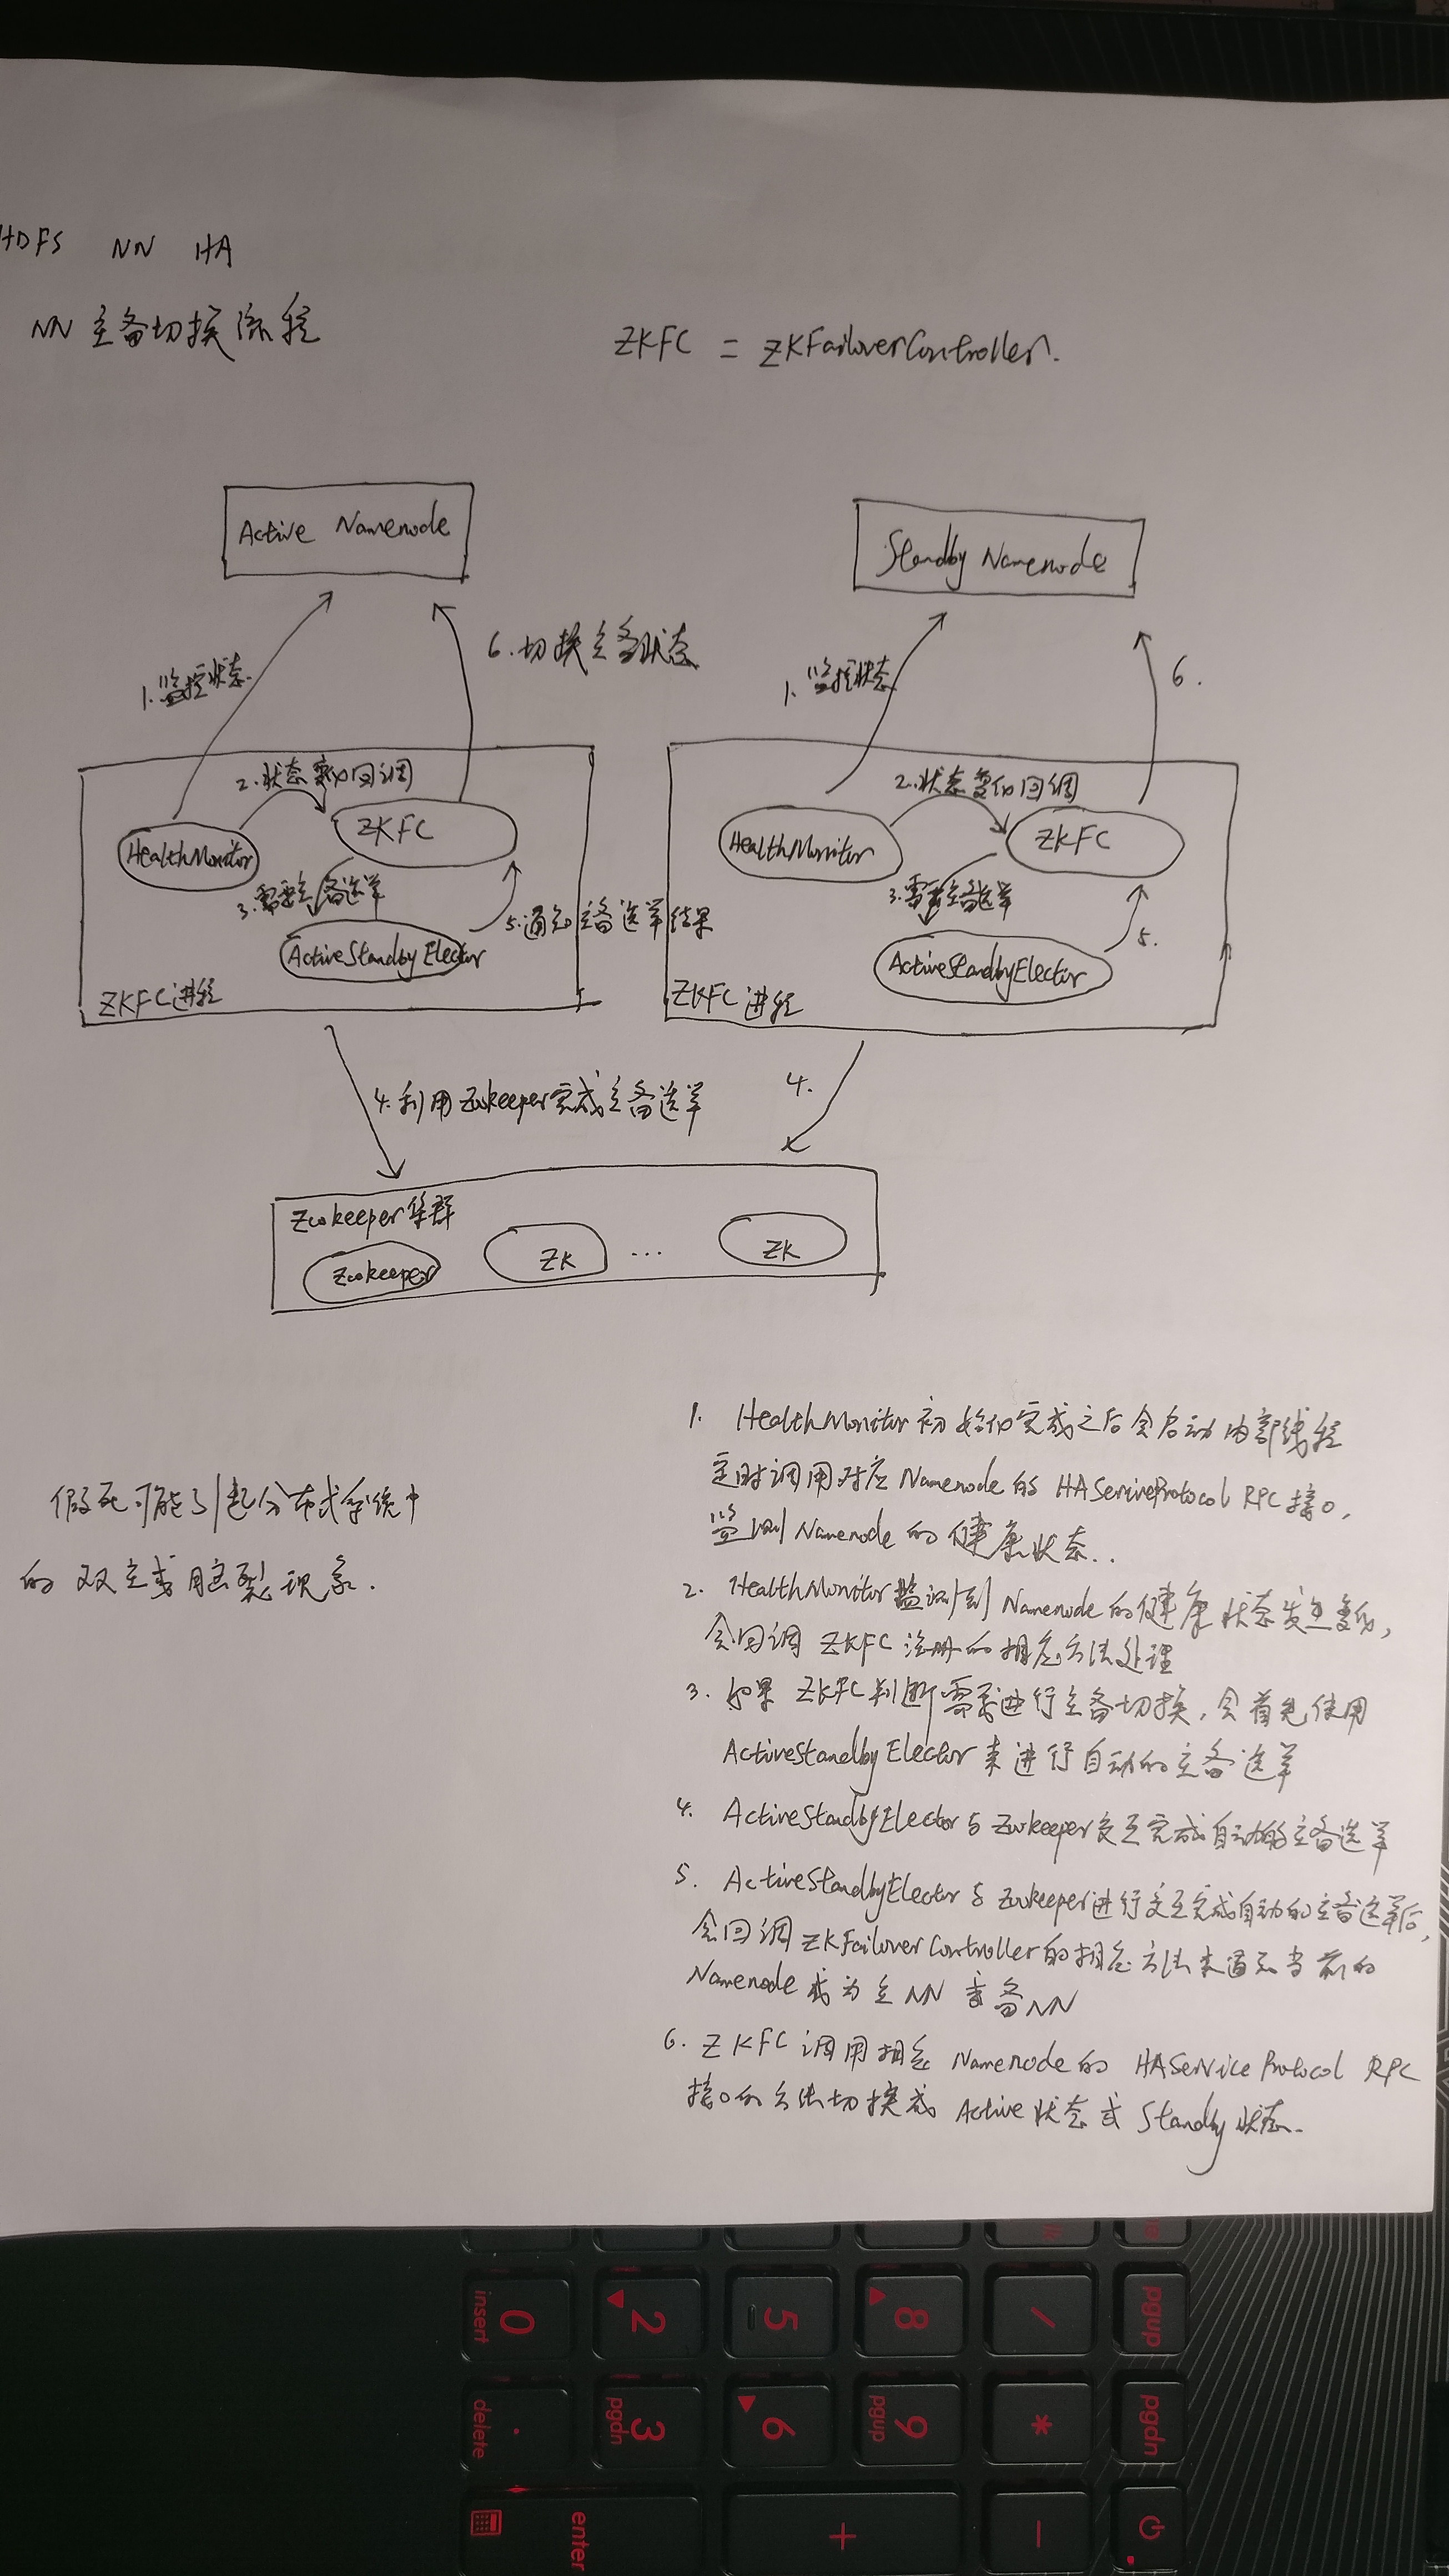 HDFS NN HA
NN 主备切换流程
ZKFC = ZKFailoverController.
Active Namenode
Standby Namenode
6.切换主备状态
1.监控状态
1.监控状态
6.
2.状态变化回调
2.状态变化回调
HealthMonitor
ZKFC
HealthMonitor
ZKFC
3.需要主备选举
3.需要主备选举
5.通知主备选举结果
5.
ActiveStandbyElector
ActiveStandbyElector
ZKFC进程
ZKFC进程
4.利用Zookeeper完成主备选举
4.
Zookeeper集群
Zookeeper
ZK
...
ZK
假死可能引起分布式系统中
的双主或脑裂现象.
1. HealthMonitor初始化完成之后会启动内部线程
定时调用对应Namenode的HAServiceProtocol RPC接口,
监测Namenode的健康状态..
2. HealthMonitor监测到Namenode的健康状态发生变化,
会回调ZKFC注册的相应方法处理
3. 如果ZKFC判断需要进行主备切换,会首先使用
ActiveStandbyElector来进行自动的主备选举
4. ActiveStandbyElector与Zookeeper交互完成自动的主备选举
5. ActiveStandbyElector与Zookeeper进行交互完成自动的主备选举后,
会回调ZKFailoverController的相应方法来通知当前的
Namenode成为主NN或备NN
6. ZKFC调用相应Namenode的HAServiceProtocol RPC
接口的方法切换成Active状态或Standby状态.
pgup
/
8
5
2
0
insert
pgdn
*
9
pgup
6
3
pgdn
.
delete
-
+
enter